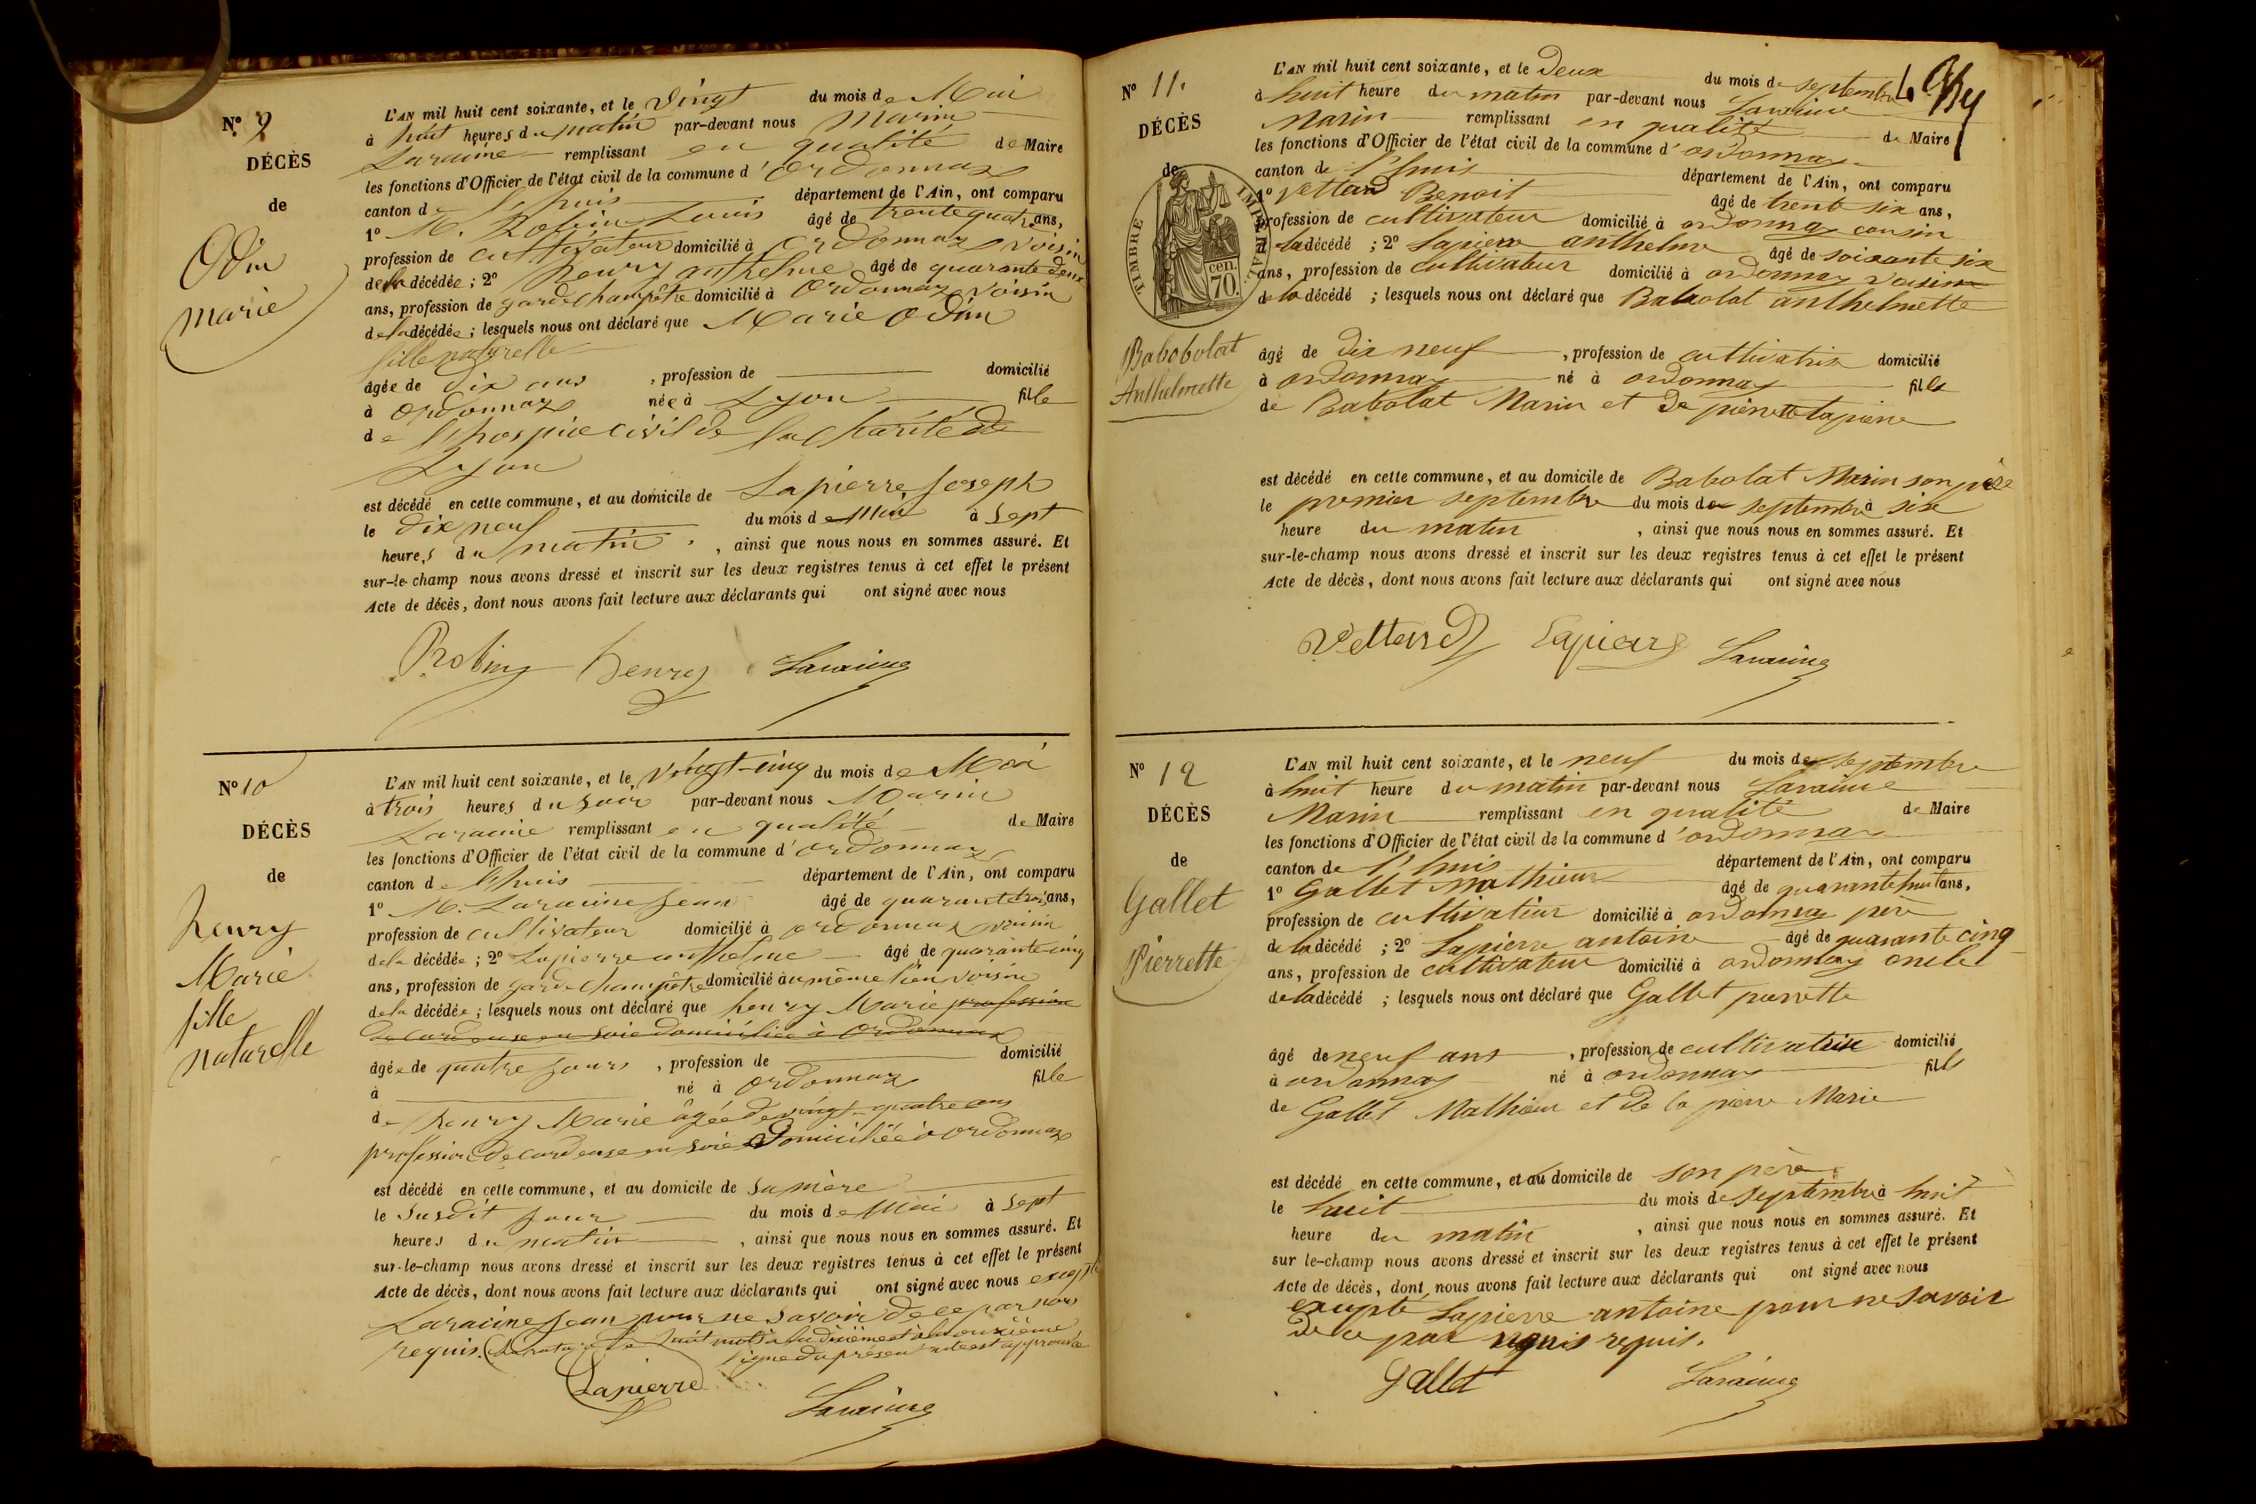 N° 9
DÉCÈS
de
Odin
marie
L'AN mil huit cent soixante, et le vingt du mois de Mai
à huit heures du matin par-devant nous Marin
Laracine remplissant en qualité de Maire
les fonctions d'Officier de l'état civil de la commune d'ordonnaz
canton de l'huis département de l'Ain, ont comparu
1° M. Robin Louis âgé de trente quatre ans,
profession de cultivateur domicilié à ordonnaz voisin
de la décédée ; 2° henry anthelme âgé de quarante deux
ans, profession de garde champêtre domicilié à ordonnaz voisin
de la décédée ; lesquels nous ont déclaré que Marie Odin
fille naturelle
âgée de dix ans , profession de domicilié
à ordonnaz née à Lyon fille
de l'hospice civil de la charité de
Lyon
est décédé en cette commune, et au domicile de Lapierre Joseph
le dix neuf du mois de Mai à sept
heures du matin , ainsi que nous nous en sommes assuré. Et
sur-le-champ nous avons dressé et inscrit sur les deux registres tenus à cet effet le présent
Acte de décès, dont nous avons fait lecture aux déclarants qui ont signé avec nous
Robin henry Laracine
N° 10
DÉCÈS
de
henry
Marie
fille
naturelle
L'AN mil huit cent soixante, et le vingt-cinq du mois de Mai
à trois heures du soir par-devant nous Marin
Laracine remplissant en qualité de Maire
les fonctions d'Officier de l'état civil de la commune d'ordonnaz
canton de l'huis département de l'Ain, ont comparu
1° M. Laracine Jean âgé de quarante trois ans,
profession de cultivateur domicilié à ordonnaz voisin
de la décédée ; 2° Lapierre anthelme âgé de quarante-cinq
ans, profession de garde champêtre domicilié au même lieu voisin
de la décédée ; lesquels nous ont déclaré que henry Marie profession
de cardeuse en soie domiciliée à ordonnaz
âgée de quatre jours , profession de domicilié
à né à ordonnaz fille
de henry Marie âgée de vingt-quatre ans
profession de cardeuse en soie domiciliée à ordonnaz
est décédé en cette commune, et au domicile de sa mère
le susdit jour du mois de Mai à sept
heures du matin , ainsi que nous nous en sommes assuré. Et
sur-le-champ nous avons dressé et inscrit sur les deux registres tenus à cet effet le présent
Acte de décès, dont nous avons fait lecture aux déclarants qui ont signé avec nous excepté
Laracine Jean pour ne savoir de ce par nous
requis. La rature de huit mots à la dixième et à la onzième
ligne du présent acte est approuvée
Lapierre Laracine
N° 11.
DÉCÈS
de
TIMBRE IMPÉRIAL
70 cen.
Babobolat
Anthelmette
L'AN mil huit cent soixante, et le deux du mois de septembre
à huit heure du matin par-devant nous Laracine
Marin remplissant en qualité de Maire
les fonctions d'Officier de l'état civil de la commune d'ordonnaz
canton de l'huis département de l'Ain, ont comparu
1° Vettard Benoit âgé de trente six ans,
profession de cultivateur domicilié à ordonnaz cousin
de la décédé ; 2° Lapierre anthelme âgé de soixante six
ans, profession de cultivateur domicilié à ordonnaz voisin
de la décédé ; lesquels nous ont déclaré que Babolat anthelmette
âgé de dix neuf , profession de cultivatrix domicilié
à ordonnaz né à ordonnaz fille
de Babolat Marin et de pierrette lapierre
est décédé en cette commune, et au domicile de Babolat Marin son père
le premier septembre du mois de septembre à six
heure du matin , ainsi que nous nous en sommes assuré. Et
sur-le-champ nous avons dressé et inscrit sur les deux registres tenus à cet effet le présent
Acte de décès, dont nous avons fait lecture aux déclarants qui ont signé avec nous
Vettard Lapierre Laracine
N° 12
DÉCÈS
de
Gallet
Pierrette
L'AN mil huit cent soixante, et le neuf du mois de septembre
à huit heure du matin par-devant nous Laracine
Marin remplissant en qualité de Maire
les fonctions d'Officier de l'état civil de la commune d'ordonnaz
canton de l'huis département de l'Ain, ont comparu
1° Gallet Mathieu âgé de quarante huit ans,
profession de cultivateur domicilié à ordonnaz père
de la décédé ; 2° Lapierre antoine âgé de quarante cinq
ans, profession de cultivateur domicilié à ordonnaz oncle
de la décédé ; lesquels nous ont déclaré que Gallet pierrette
âgé de neuf ans , profession de cultivatrix domicilié
à ordonnaz né à ordonnaz fille
de Gallet Mathieu et de la pierre Marie
est décédé en cette commune, et au domicile de son père
le huit du mois de septembre à huit
heure du matin , ainsi que nous nous en sommes assuré. Et
sur le-champ nous avons dressé et inscrit sur les deux registres tenus à cet effet le présent
Acte de décès, dont nous avons fait lecture aux déclarants qui ont signé avec nous
excepté Lapierre antoine pour ne savoir
de ce par requis requis.
Gallet Laracine